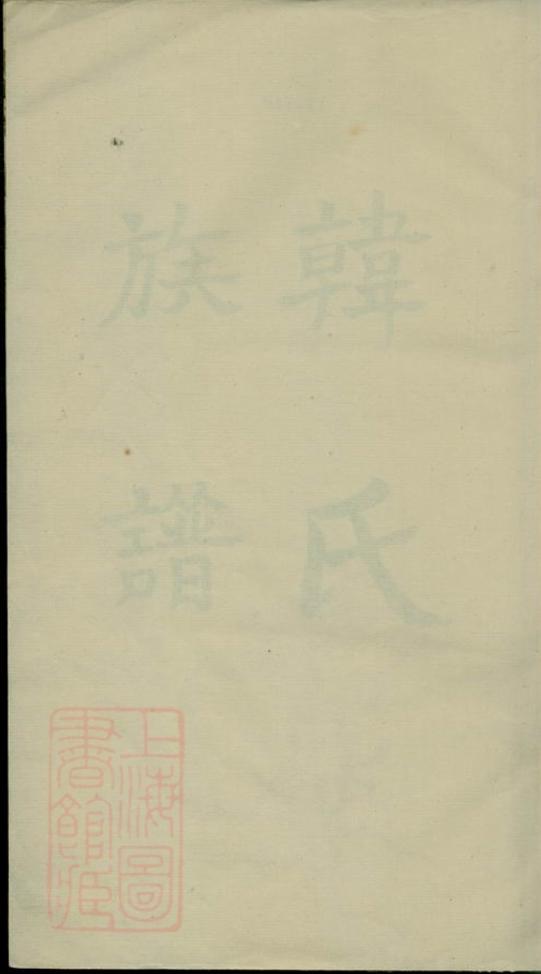 韓氏
族譜
上海圖
書館藏